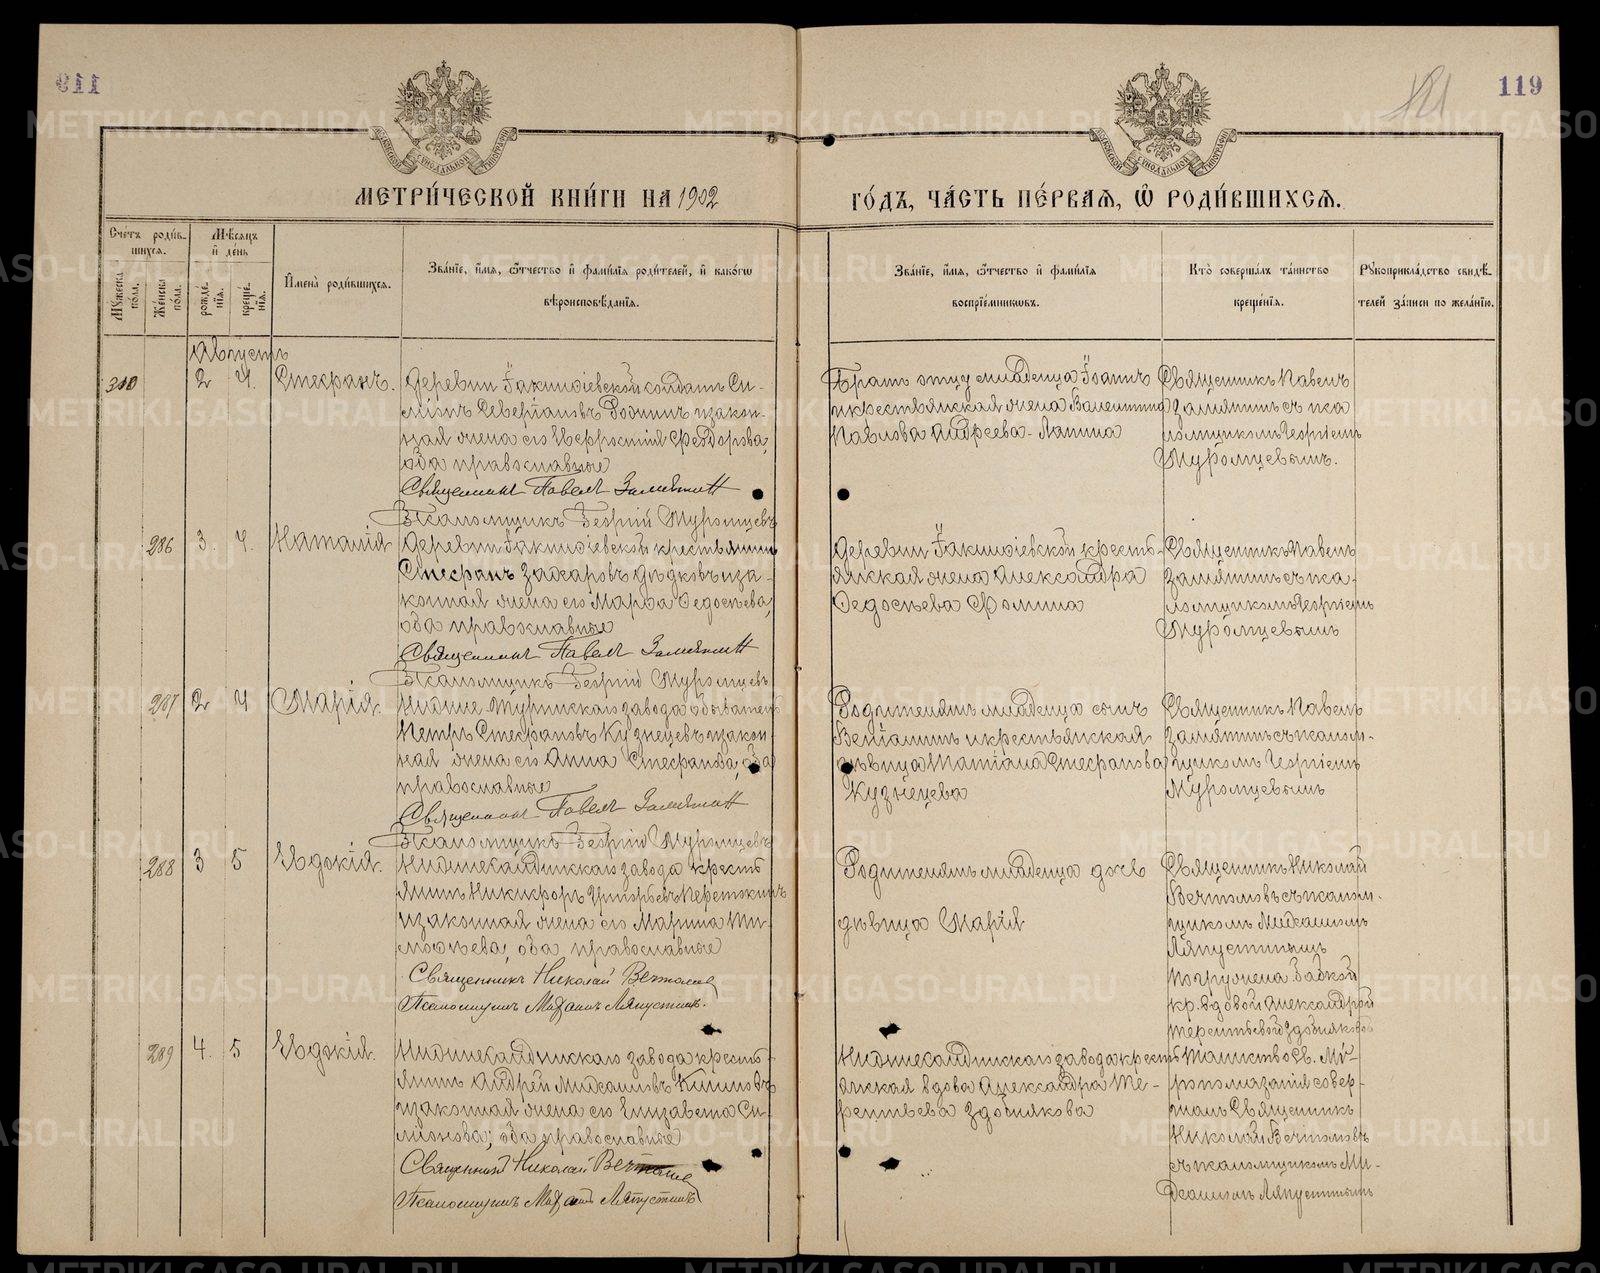 119
МЕТРИ́ЧЕСКОЙ КНИ́ГИ НА 1902
ГО́ДЪ, ЧА́СТЬ ПЕ́РВАѦ, Ѡ҆ РОДИ́ВШИХСѦ.
Сче́тъ роди́в-
шихсѧ.
Мꙋ́жеска
по́ла.
Же́нска
по́ла.
Мѣ́сѧцъ
и҆ де́нь
рожде́-
нїѧ.
креще́-
нїѧ.
И҆мена̀ роди́вшихсѧ.
Зва́нїе, и҆́мѧ, ѻ҆́тчество и҆ фами́лїѧ роди́телей, и҆ како́гѡ
вѣроисповѣ́данїѧ.
Зва́нїе, и҆́мѧ, ѻ҆́тчество и҆ фами́лїѧ
воспрїе́мникѡвъ.
Кто̀ соверша́лъ та́инство
креще́нїѧ.
Рꙋкоприкла́дство свидѣ́-
телей за́писи по жела́нїю.
Августъ
2 4. Стефанъ.
Деревни Іакинѳіевской солдатъ Си-
міонъ Северіановъ и закон-
ная жена его Ѳеодорова,
оба православные
Священникъ Павелъ Замятинъ
Псаломщикъ Георгій Муромцевъ
Братъ отцу младенца Іоаннъ
и крестьянская жена Валентина
Павлова Андреева-Лапина
Священникъ Павелъ
Замятинъ съ пса
ломщикомъ Георгіемъ
Муромцевымъ.
286 3. 4. Наталія
Деревни Іакинѳіевской крестьянинъ
Стефанъ Захаровъ Дѣдковъ и за-
конная жена его Марѳа Ѳедосѣева,
оба православные
Священникъ Павелъ Замятинъ
Псаломщикъ Георгій Муромцевъ
Деревни Іакинѳіевской кресть-
янская жена Александра
Ѳедосѣева Ѳомина
Священникъ Павелъ
Замятинъ съ пса-
ломщикомъ Георгіемъ
Муромцевымъ
287 2 4 Марія.
Нижне-Туринскаго завода обыватель
Петръ Стефановъ Кузнецовъ и закон
ная жена его Анна Стефанова, оба
православные
Священникъ Павелъ Замятинъ
Псаломщикъ Георгій Муромцевъ
Родителямъ младенца сынъ
Веніаминъ и крестьянская
дѣвица Татіана Стефанова
Кузнецева
Священникъ Павелъ
Замятинъ съ псалом-
щикомъ Георгіемъ
Муромцевымъ
288 3 5 Евдокія.
Нижнесалдинскаго завода кресть
янинъ Никифоръ Григорьевъ
и законная жена его Марина Ти-
моѳеева, оба православные
Священникъ Николай Вечтомовъ
Псаломщикъ Михаилъ Ляпустинъ.
Родителямъ младенца дочь
дѣвица Марія
Священникъ Николай
Вечтомовъ съ псалом-
щикомъ Михаиломъ
Ляпустинымъ
Погружена бабкой
кр. вдовой Александрой
Терентьевой Здобняковой
289 4. 5 Евдокія.
Нижнесалдинскаго завода кресть-
янинъ Андрей Михаиловъ
и законная жена его Елизавета Си-
міонова, оба православные
Священникъ Николай Вечтомовъ
Псаломщикъ Михаилъ Ляпустинъ
Нижнесалдинскаго завода кресть
янская вдова Александра Те-
рентьева Здобнякова
Таинство Св. Мѵ-
ропомазанія совер-
шалъ Священникъ
Николай Вечтомовъ
съ псаломщикомъ Ми-
хаиломъ Ляпустинымъ
METRIKI.GASO-URAL.RU